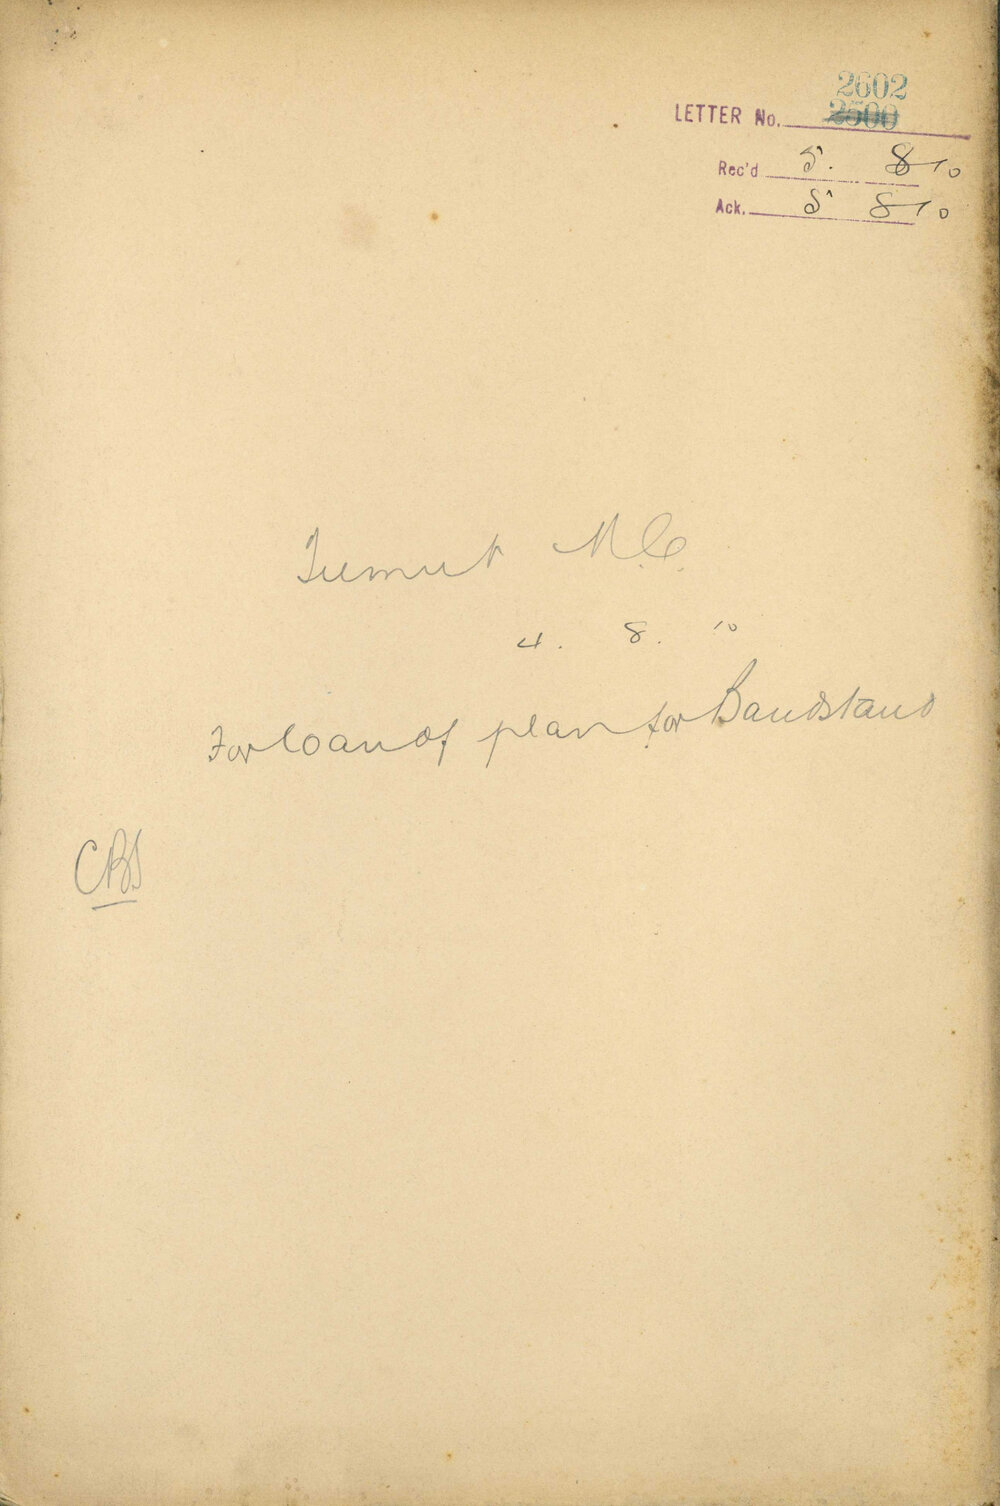 2602
LETTER No. 2500
Rec'd 5. 8 10
Ack. 5 8 10
Tumut M.C.
4. 8. 10
For loan of plan for Bandstand
CBS